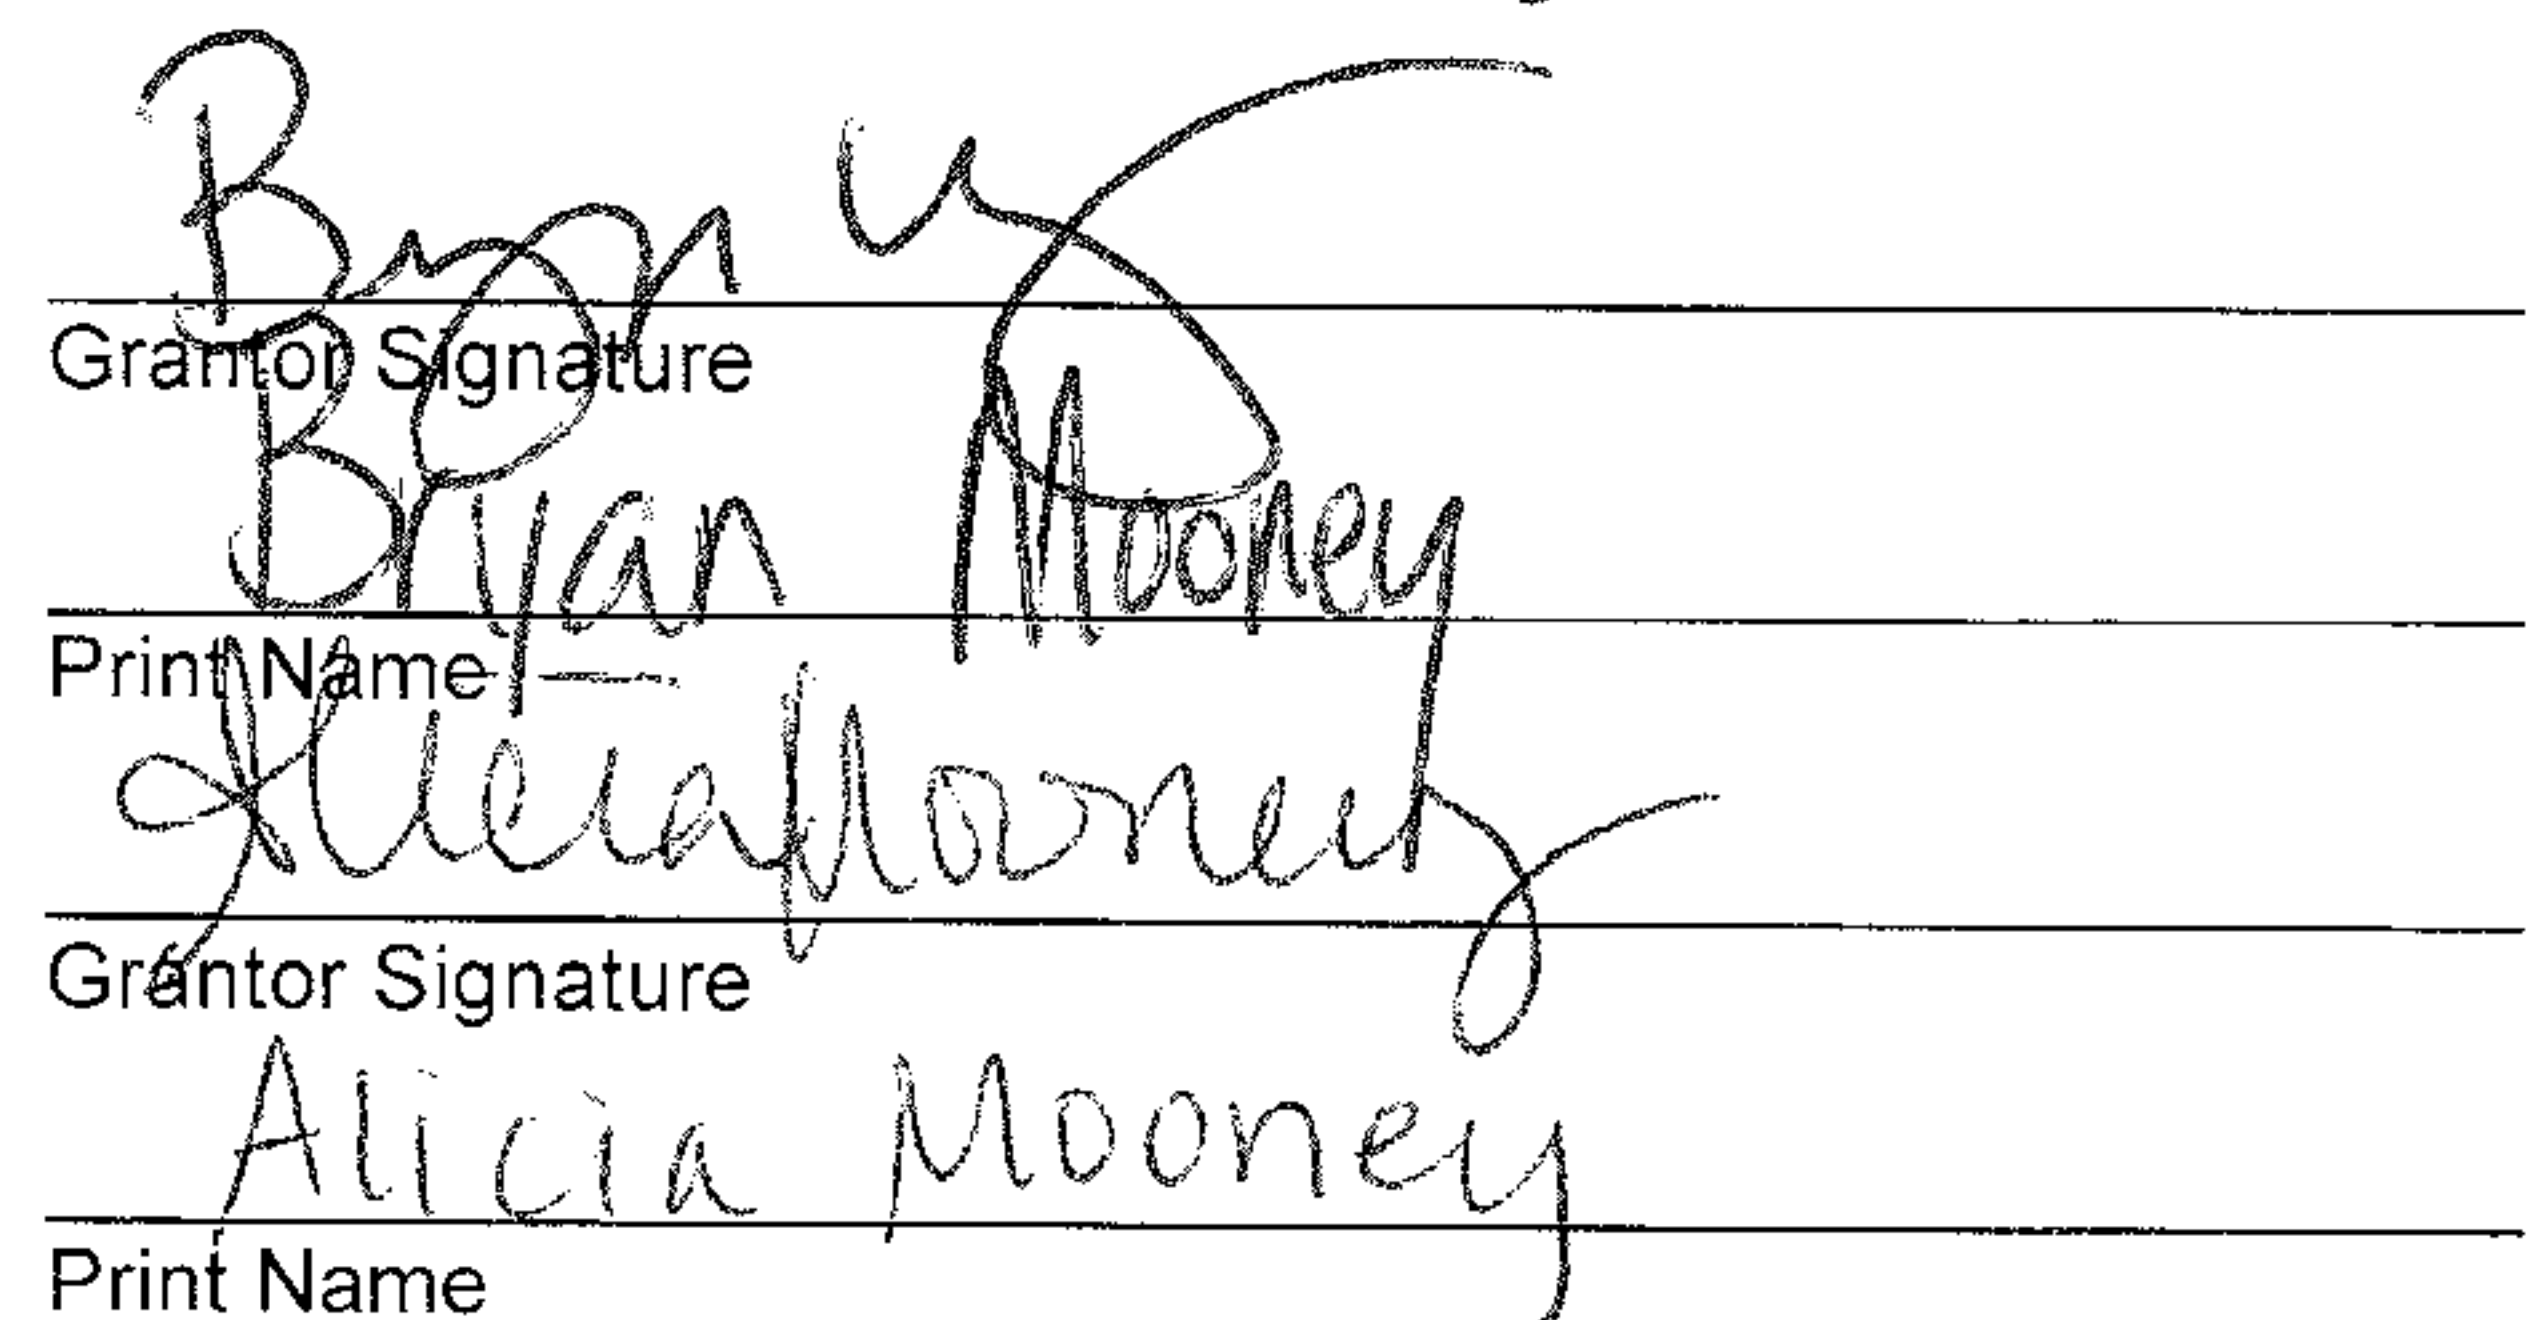 Bryan
Grantor Signature
Bryan Mooney
Print Name
Alicia Mooney
Grantor Signature
Alicia Mooney
Print Name